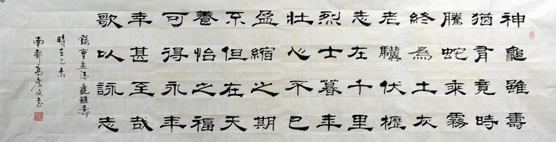 神龜雖壽
猶有竟時
騰蛇乘霧
終為土灰
老驥伏櫪
志在千里
烈士暮年
壯心不已
盈縮之期
不但在天
養怡之福
可得永年
幸甚至哉
歌以詠志
錄曹孟德龜雖壽